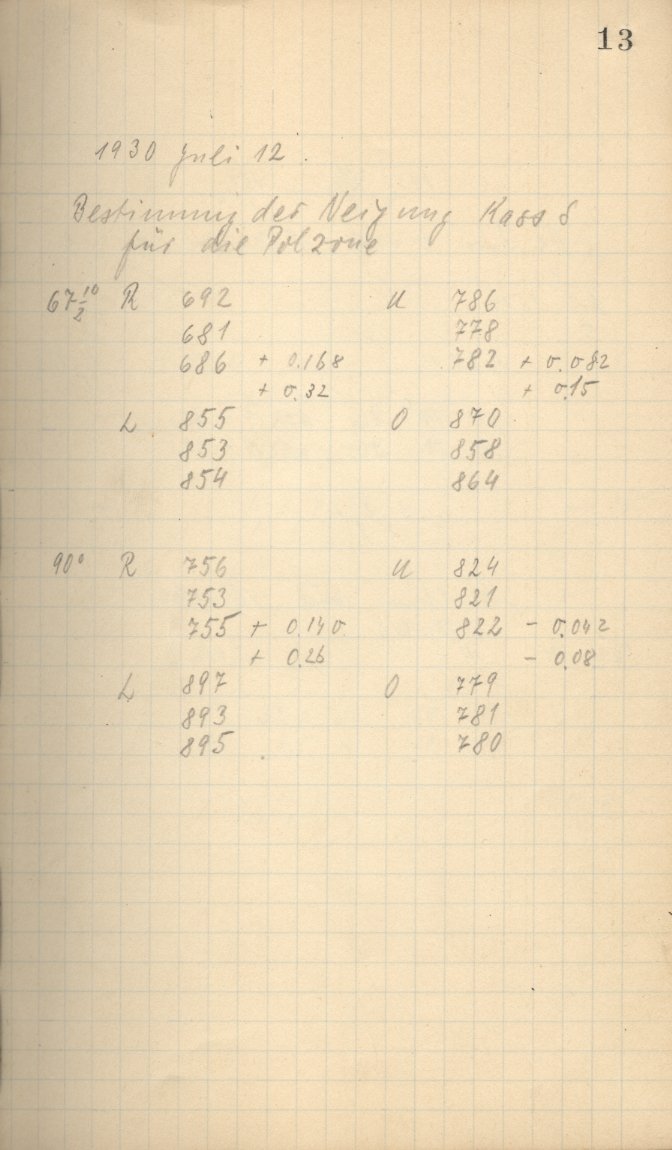 13
1930 Juli 12.
Bestimmung der Neigung Kass S
für die Polzone
67½° R 692 U 786
681 778
686 + 0.168 782 + 0.082
+ 0.32 + 0.15
L 855 O 870
853 858
854 864
90° R 756 U 824
753 821
755 + 0.140 822 - 0.042
+ 0.26 - 0.08
L 897 O 779
893 781
895 780